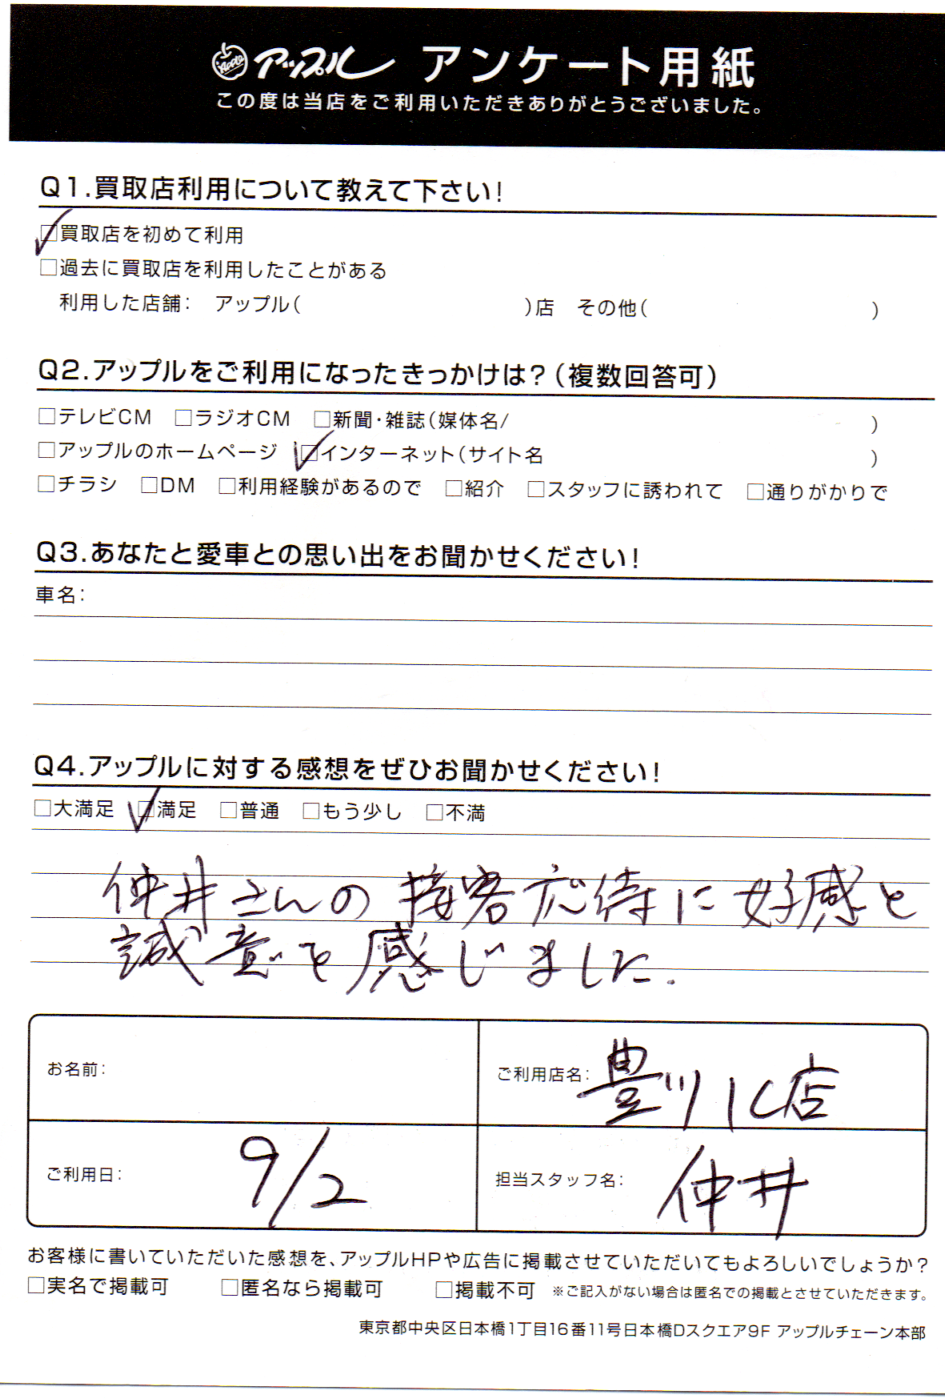 Apple アップル アンケート用紙
この度は当店をご利用いただきありがとうございました。
Q1.買取店利用について教えて下さい!
☑買取店を初めて利用
□過去に買取店を利用したことがある
利用した店舗: アップル( )店 その他( )
Q2.アップルをご利用になったきっかけは?(複数回答可)
□テレビCM □ラジオCM □新聞・雑誌(媒体名/ )
□アップルのホームページ ☑インターネット(サイト名 )
□チラシ □DM □利用経験があるので □紹介 □スタッフに誘われて □通りがかりで
Q3.あなたと愛車との思い出をお聞かせください!
車名:
Q4.アップルに対する感想をぜひお聞かせください!
□大満足 ☑満足 □普通 □もう少し □不満
仲井さんの接客応待に好感と
誠意を感じました.
お名前:
ご利用店名: 豊川IC店
ご利用日: 9/2
担当スタッフ名: 仲井
お客様に書いていただいた感想を、アップルHPや広告に掲載させていただいてもよろしいでしょうか?
□実名で掲載可 □匿名なら掲載可 □掲載不可 ※ご記入がない場合は匿名での掲載とさせていただきます。
東京都中央区日本橋1丁目16番11号日本橋Dスクエア9F アップルチェーン本部